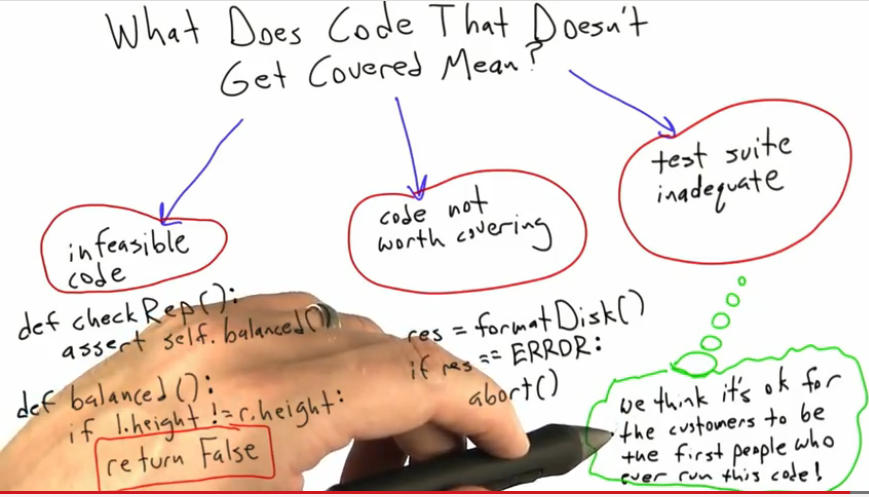 What Does Code That Doesn't
Get Covered Mean?
infeasible
code
code not
worth covering
test suite
inadequate
def checkRep():
assert self.balanced()
def balanced():
if l.height != r.height:
return False
res = formatDisk()
if res == ERROR:
abort()
we think it's ok for
the customers to be
the first people who
ever run this code!